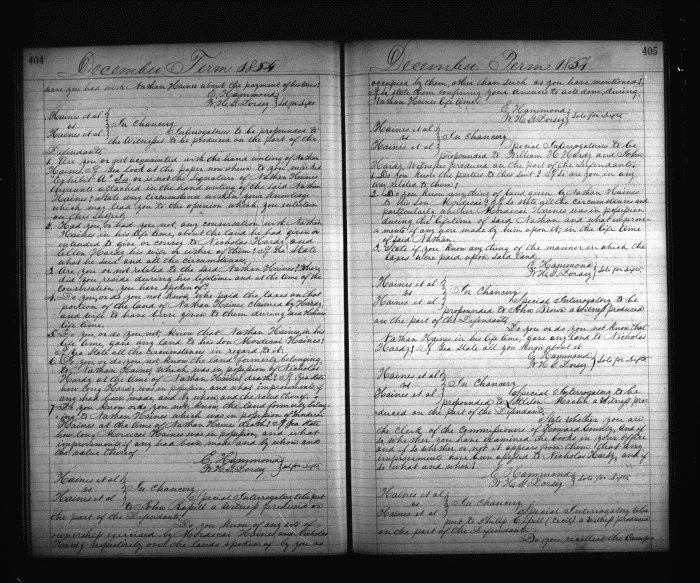 404
December Term 1854
have you had with Nathan Haines about the payment of his taxes?
E. Hammond
W. H. G. Dorsey } Sol for Defts
Haines et al }
vs } In Chancery
Haines et al } Interrogatories to be propounded to
the Witnesses to be produced on the part of the
Defendants
1. Are you or not acquainted with the hand writing of Nathan
Haines? If Yea look at the paper now shown to you marked
Exhibit A. Is or is not the signature of Nathan Haines
thereunto attached in the hand writing of the said Nathan
Haines? State any circumstance within your knowledge
which may lead you to the opinion which you entertain
on this subject
2. Had you or had you not any conversation with Nathan
Haines in his life time, about the land he had given or
intended to give or convey to Nicholas Hardy and
Hardy his wife or either of them? If Yea State
what he said and all the circumstances.
3. Are you or not related to the said Nathan Haines? Where
did you reside during his lifetime and at the time of the
conversation you have spoken of?
4. Do you or do you not know who paid the taxes on that
portion of the land of Nathan Haines claimed by Hardy
and wife to have been given to them during said Haines
life time.
5. Do you or do you not know that Nathan Haines in his
life time gave any land to his son Mordecai Haines?
If Yea state all the circumstances in regard to it.
6. Do you or do you not know the land formerly belonging
to Nathan Haines which was in possession of Nicholas
Hardy at the time of Nathan Haines death? If Yea state
how long Hardy was in possession and what improvements if
any had been made and by whom and the value thereof.
7. Do you know or do you not know the land formerly belong-
ing to Nathan Haines which was in possession of Mordecai
Haines at the time of Nathan Haines death? If Yea state
how long Mordecai Haines was in possession and what
improvements if any had been made and by whom and
the value thereof
E. Hammond
W. H. G. Dorsey } Sol for Defts
Haines et al }
vs } In Chancery
Haines et al } Special Interrogatory to be put
to John a Witness produced on
the part of the Defendants
Do you know of any acts of
ownership exercised by Mordecai Haines and Nicholas
Hardy respectively over the lands spoken of by you as
405
December Term 1854
occupied by them, other than such as you have mentioned?
If so state them confining your answers to acts done, during
Nathan Haines life time.
E. Hammond
W. H. G. Dorsey } Sols for Defts
Haines et al }
vs } In Chancery
Haines et al } Special Interrogatories to be
propounded to William H. Hardy and John
Hardy, Witnesses produced on the part of the Defendants.
1. Do you know the parties to this suit? If so are you in any
way related to them?
2. Do you know anything of land given by Nathan Haines
to his Son Mordecai? If so state all the circumstances and
particularly whether Mordecai Haines was in possession
during the lifetime of said Nathan and what improve-
ments if any were made by him upon it, in the life time
of said Nathan.
3. State if you know any thing of the manner in which the
taxes were paid upon said land.
E. Hammond
W. H. G. Dorsey } Sols for Defts
Haines et al }
vs } In Chancery
Haines et al } Special Interrogatory to be
propounded to John Brown a Witness produced
on the part of the Defendants
Do you or do you not know that
Nathan Haines in his life time, gave any land to Nicholas
Hardy? If Yea state all you know about it
E. Hammond
W. H. G. Dorsey } Sols for Defts
Haines et al }
vs } In Chancery
Haines et al } Special Interrogatory to be
propounded to a Witness pro-
duced on the part of the Defendants
State whether you are
the Clerk of the Commissioners of Howard County, and if
so whether you have examined the books in your Office
and if so whether or not it appears from them that any
improvements have been assessed to Nicholas Hardy, and if
so what and when?
E. Hammond
W. H. G. Dorsey } Sols for Defts
Haines et al }
vs } In Chancery
Haines et al } Special Interrogatory to be
put to Philip a Witness produced
on the part of the Defendants
Do you recollect the